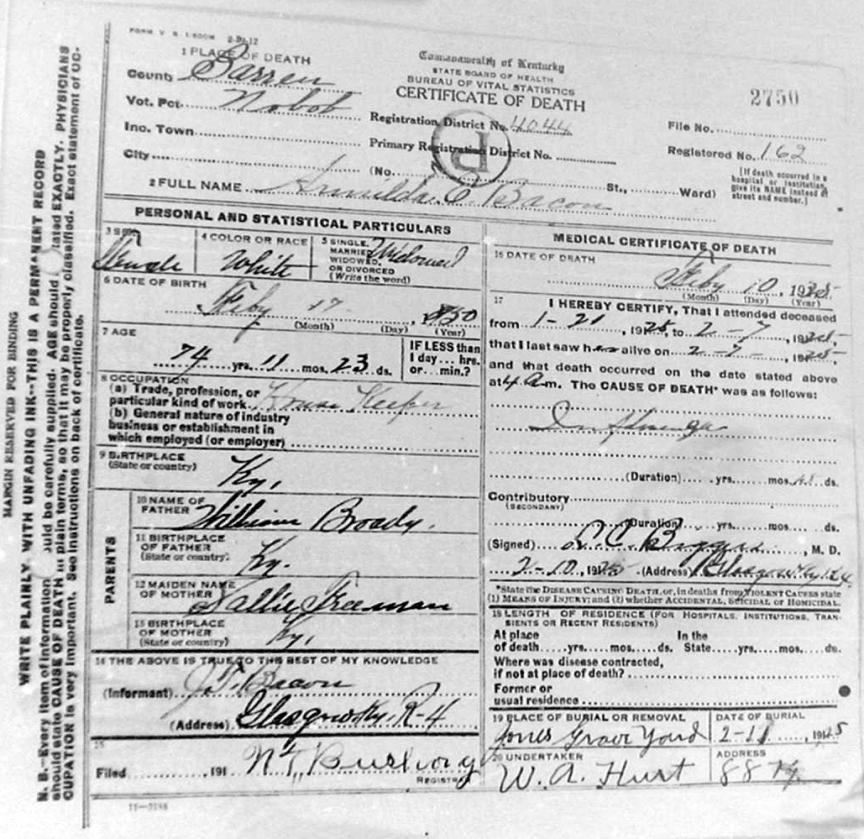 FORM V. S. 1-500M 2-21-12
1 PLACE OF DEATH
County Barren
Vot. Pct. Nobob
Inc. Town
City
Commonwealth of Kentucky
STATE BOARD OF HEALTH
BUREAU OF VITAL STATISTICS
CERTIFICATE OF DEATH
Registration District No. 4044
Primary Registration District No.
2750
File No.
Registered No. 162
(No. St., Ward)
[If death occurred in a
hospital or institution,
give its NAME instead of
street and number.]
2 FULL NAME E. Bacon
PERSONAL AND STATISTICAL PARTICULARS
3 SEX
Female
4 COLOR OR RACE
White
5 SINGLE,
MARRIED,
WIDOWED,
OR DIVORCED
(Write the word)
Widowed
6 DATE OF BIRTH
Feby 17 1850
(Month) (Day) (Year)
7 AGE
74 yrs. 11 mos. 23 ds.
IF LESS than
1 day... hrs.
or... min.?
8 OCCUPATION
(a) Trade, profession, or
particular kind of work House Keeper
(b) General nature of industry
business or establishment in
which employed (or employer)
9 BIRTHPLACE
(State or country)
Ky.
PARENTS
10 NAME OF
FATHER
William Broady.
11 BIRTHPLACE
OF FATHER
(State or country)
Ky.
12 MAIDEN NAME
OF MOTHER
Sallie Freeman
13 BIRTHPLACE
OF MOTHER
Ky.
14 THE ABOVE IS TRUE TO THE BEST OF MY KNOWLEDGE
(Informant) J. T. Bacon
(Address) Glasgow Ky. R-4
15
Filed 191 N T Bushong
REGISTRAR
11-3184
MEDICAL CERTIFICATE OF DEATH
16 DATE OF DEATH
Feby 10, 1925
(Month) (Day) (Year)
17
I HEREBY CERTIFY, That I attended deceased
from 1-21, 1925, to 2-7, 1925,
that I last saw her alive on 2-7-, 1925,
and that death occurred on the date stated above
at 4 a m. The CAUSE OF DEATH* was as follows:
Influenza
(Duration) yrs. mos. ds.
Contributory
(SECONDARY)
(Duration) yrs. mos. ds.
(Signed) C. , M. D.
2-10, 1925 (Address) Glasgow Ky R4
*State the DISEASE CAUSING DEATH, or, in deaths from VIOLENT CAUSES state
(1) MEANS OF INJURY; and (2) whether ACCIDENTAL, SUICIDAL or HOMICIDAL.
18 LENGTH OF RESIDENCE (FOR HOSPITALS, INSTITUTIONS, TRAN-
SIENTS OR RECENT RESIDENTS)
At place
of death yrs. mos. ds.
In the
State yrs. mos. ds.
Where was disease contracted,
if not at place of death?
Former or
usual residence
19 PLACE OF BURIAL OR REMOVAL
Jones Grave Yard
DATE OF BURIAL
2-11, 1925
20 UNDERTAKER
W. A. Hurt
ADDRESS
88 Ky.
MARGIN RESERVED FOR BINDING
WRITE PLAINLY, WITH UNFADING INK---THIS IS A PERMANENT RECORD
N. B.--Every item of information should be carefully supplied. AGE should stated EXACTLY. PHYSICIANS
should state CAUSE OF DEATH in plain terms, so that it may be properly classified. Exact statement of OC-
CUPATION is very important. See instructions on back of certificate.